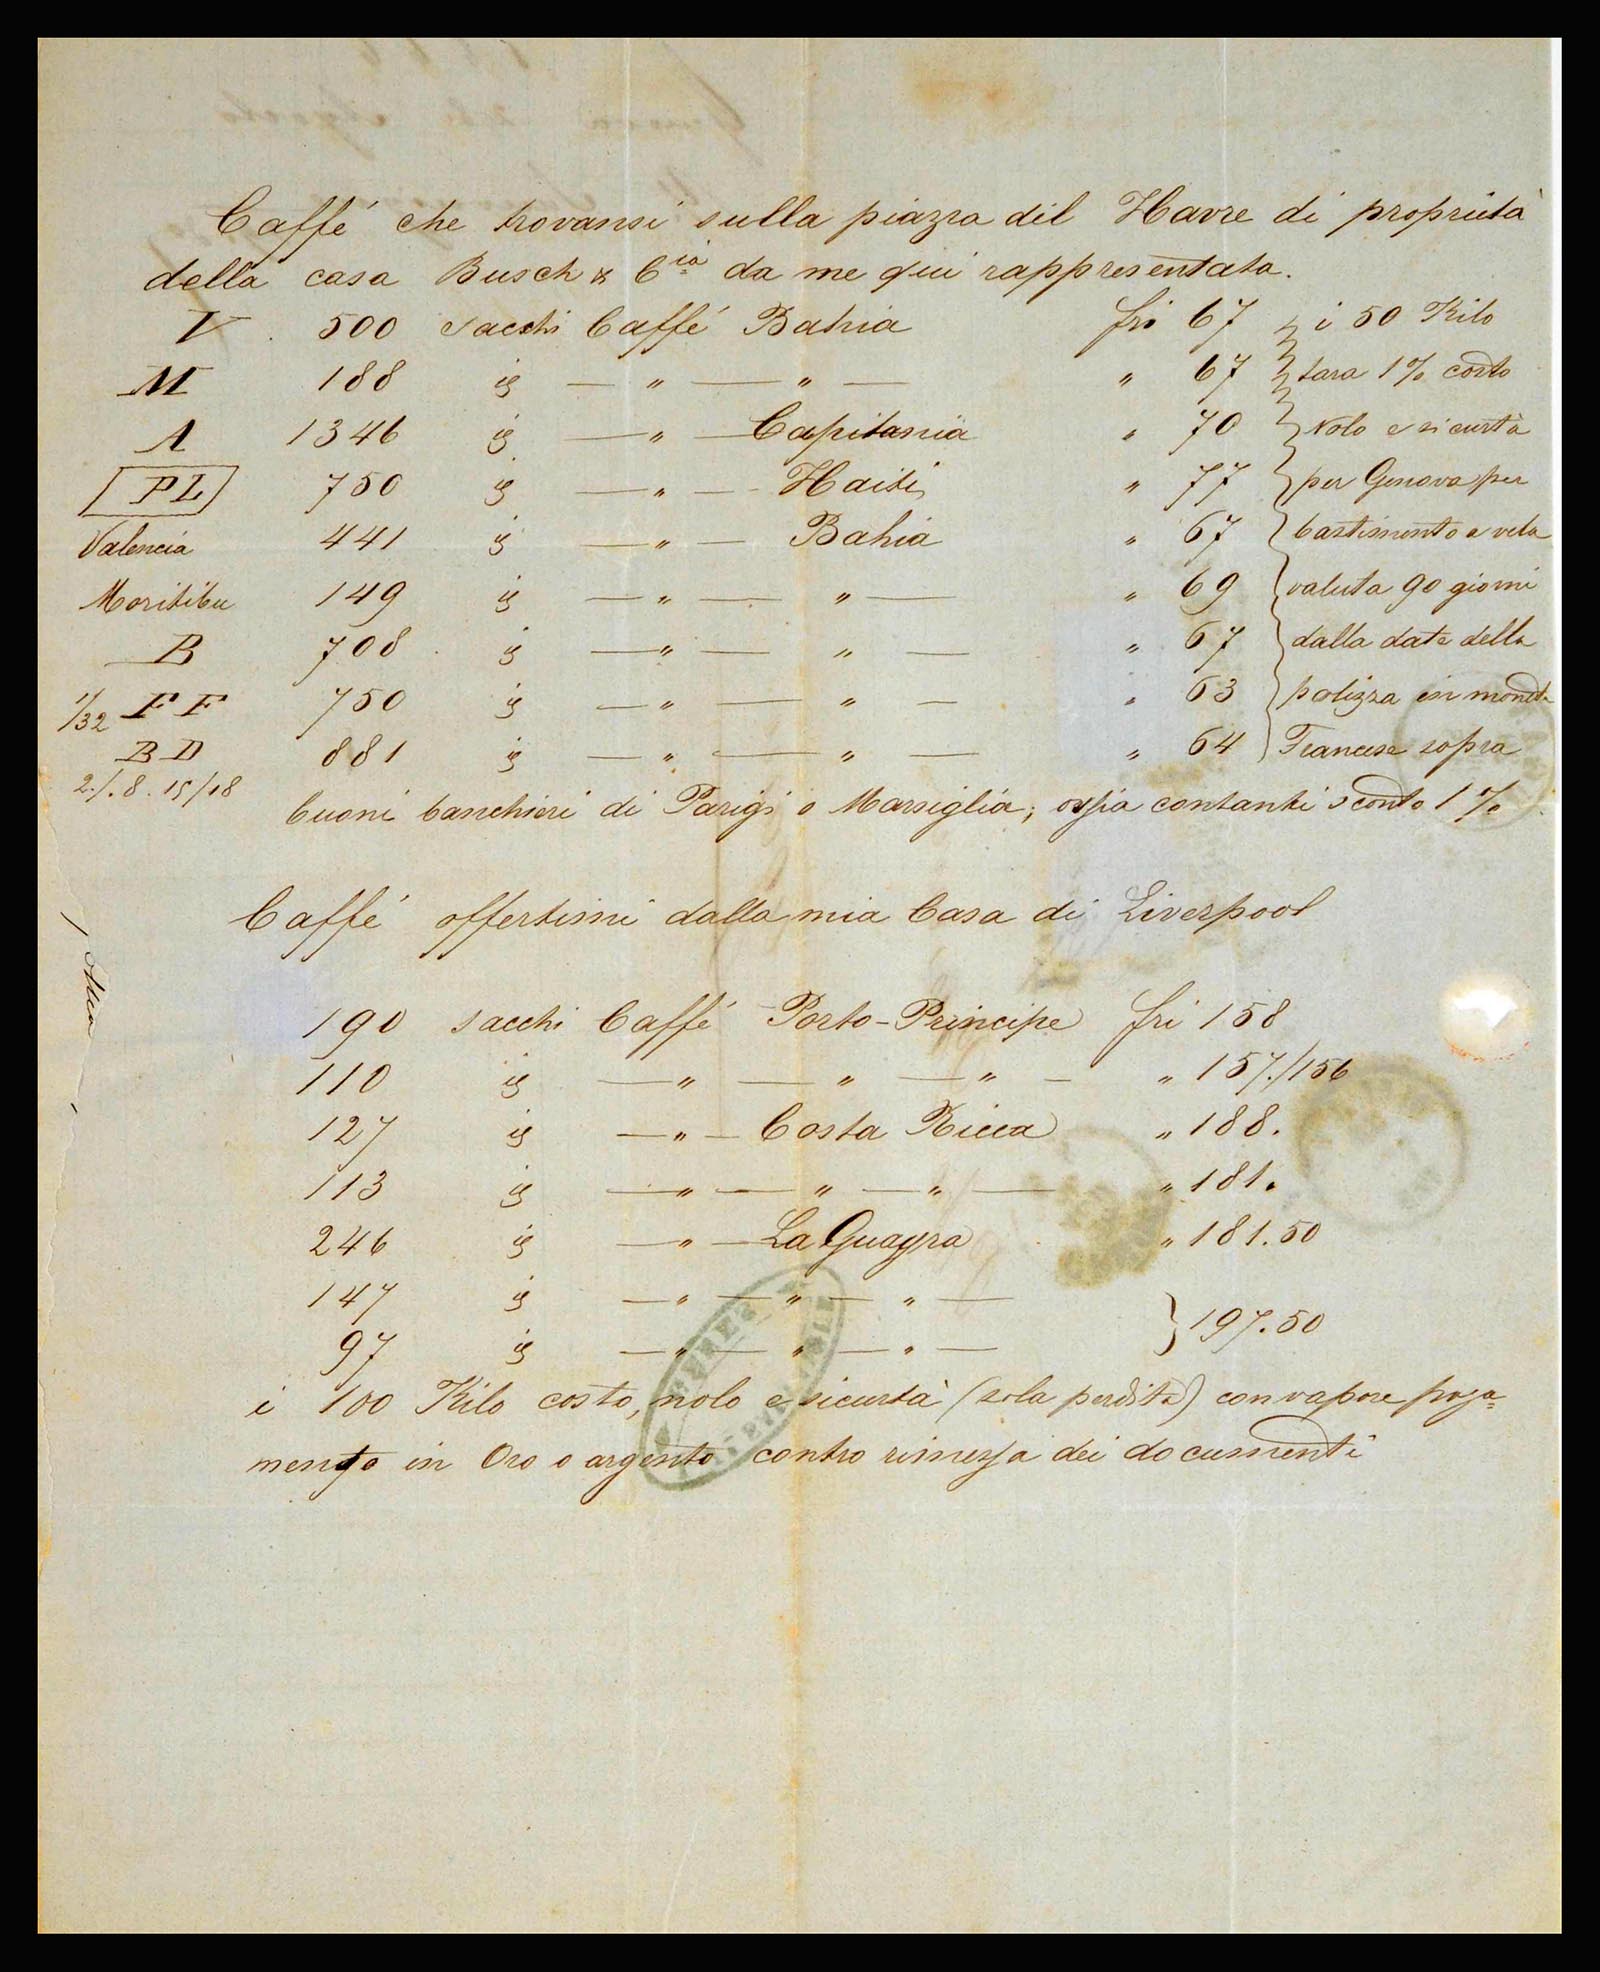 Caffé che trovansi sulla piazza del Havre di proprietà
della casa Busch & Cia da me qui rappresentata.
V. 500 sacchi Caffé Bahia fri 67 } i 50 Kilo
M 188 id — " — " — " 67 } tara 1% costo
A 1346 id — " — Capitania " 70 } Nolo e sicurtà
PL 750 id — " — Haiti " 77 } per Genova per
Valencia 441 id — " — Bahia " 67 } bastimento a vela
Moritibu 149 id — " — " — " 69 } valuta 90 giorni
B 708 id — " — " — " 67 } dalla data della
1/32 FF 750 id — " — " — " 63 } polizza in moneta
BD 881 id — " — " — " 64 } Francese sopra
2./.8.15/18
buoni banchieri di Parigi o Marsiglia; ossia contanti sconto 1%
Caffé offertimi dalla mia Casa di Liverpool
190 sacchi Caffé Porto-Principe fri 158
110 id — " — " — " — " 157./156
127 id — " — Costa Ricca " 188.
113 id — " — " — " — " 181.
246 id — " — La Guayra " 181.50
147 id — " — " — " —
97 id — " — " — " — } 197.50
i 100 Kilo costo, nolo e sicurtà (sola perdita) con vapore paga=
mento in Oro o argento contro rimessa dei documenti